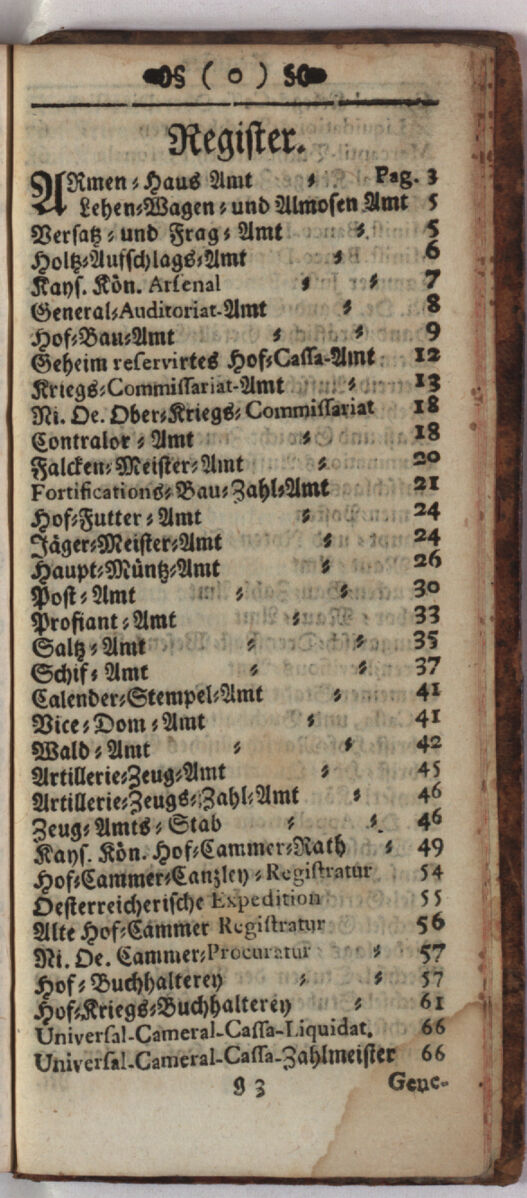 ( o )
Register.
ARmen-Haus Amt - Pag. 3
Lehen-Wagen- und Almosen Amt 5
Versatz- und Frag-Amt - 5
Holtz-Aufschlags-Amt - 6
Kays. Kön. Arsenal - - 7
General-Auditoriat-Amt - 8
Hof-Bau-Amt - - 9
Geheim reservirtes Hof-Cassa-Amt 12
Kriegs-Commissariat-Amt - 13
Ni. Oe. Ober-Kriegs-Commissariat 18
Contralor-Amt - 18
Falcken-Meister-Amt - 20
Fortifications-Bau-Zahl-Amt 21
Hof-Futter-Amt - 24
Jäger-Meister-Amt - 24
Haupt-Müntz-Amt - 26
Post-Amt - - 30
Profiant-Amt - 33
Saltz-Amt - - 35
Schif-Amt - - 37
Calender-Stempel-Amt - 41
Vice-Dom-Amt - 41
Wald-Amt - - 42
Artillerie-Zeug-Amt - 45
Artillerie-Zeugs-Zahl-Amt - 46
Zeug-Amts-Stab - - 46
Kays. Kön. Hof-Cammer-Rath - 49
Hof-Cammer-Canzley-Registratur 54
Oesterreicherische Expedition 55
Alte Hof-Cammer Registratur 56
Ni. Oe. Cammer-Procuratur - 57
Hof-Buchhalterey - - 57
Hof-Kriegs-Buchhalterey - 61
Universal-Cameral-Cassa-Liquidat. 66
Universal-Cameral-Cassa-Zahlmeister 66
g 3 Gene-